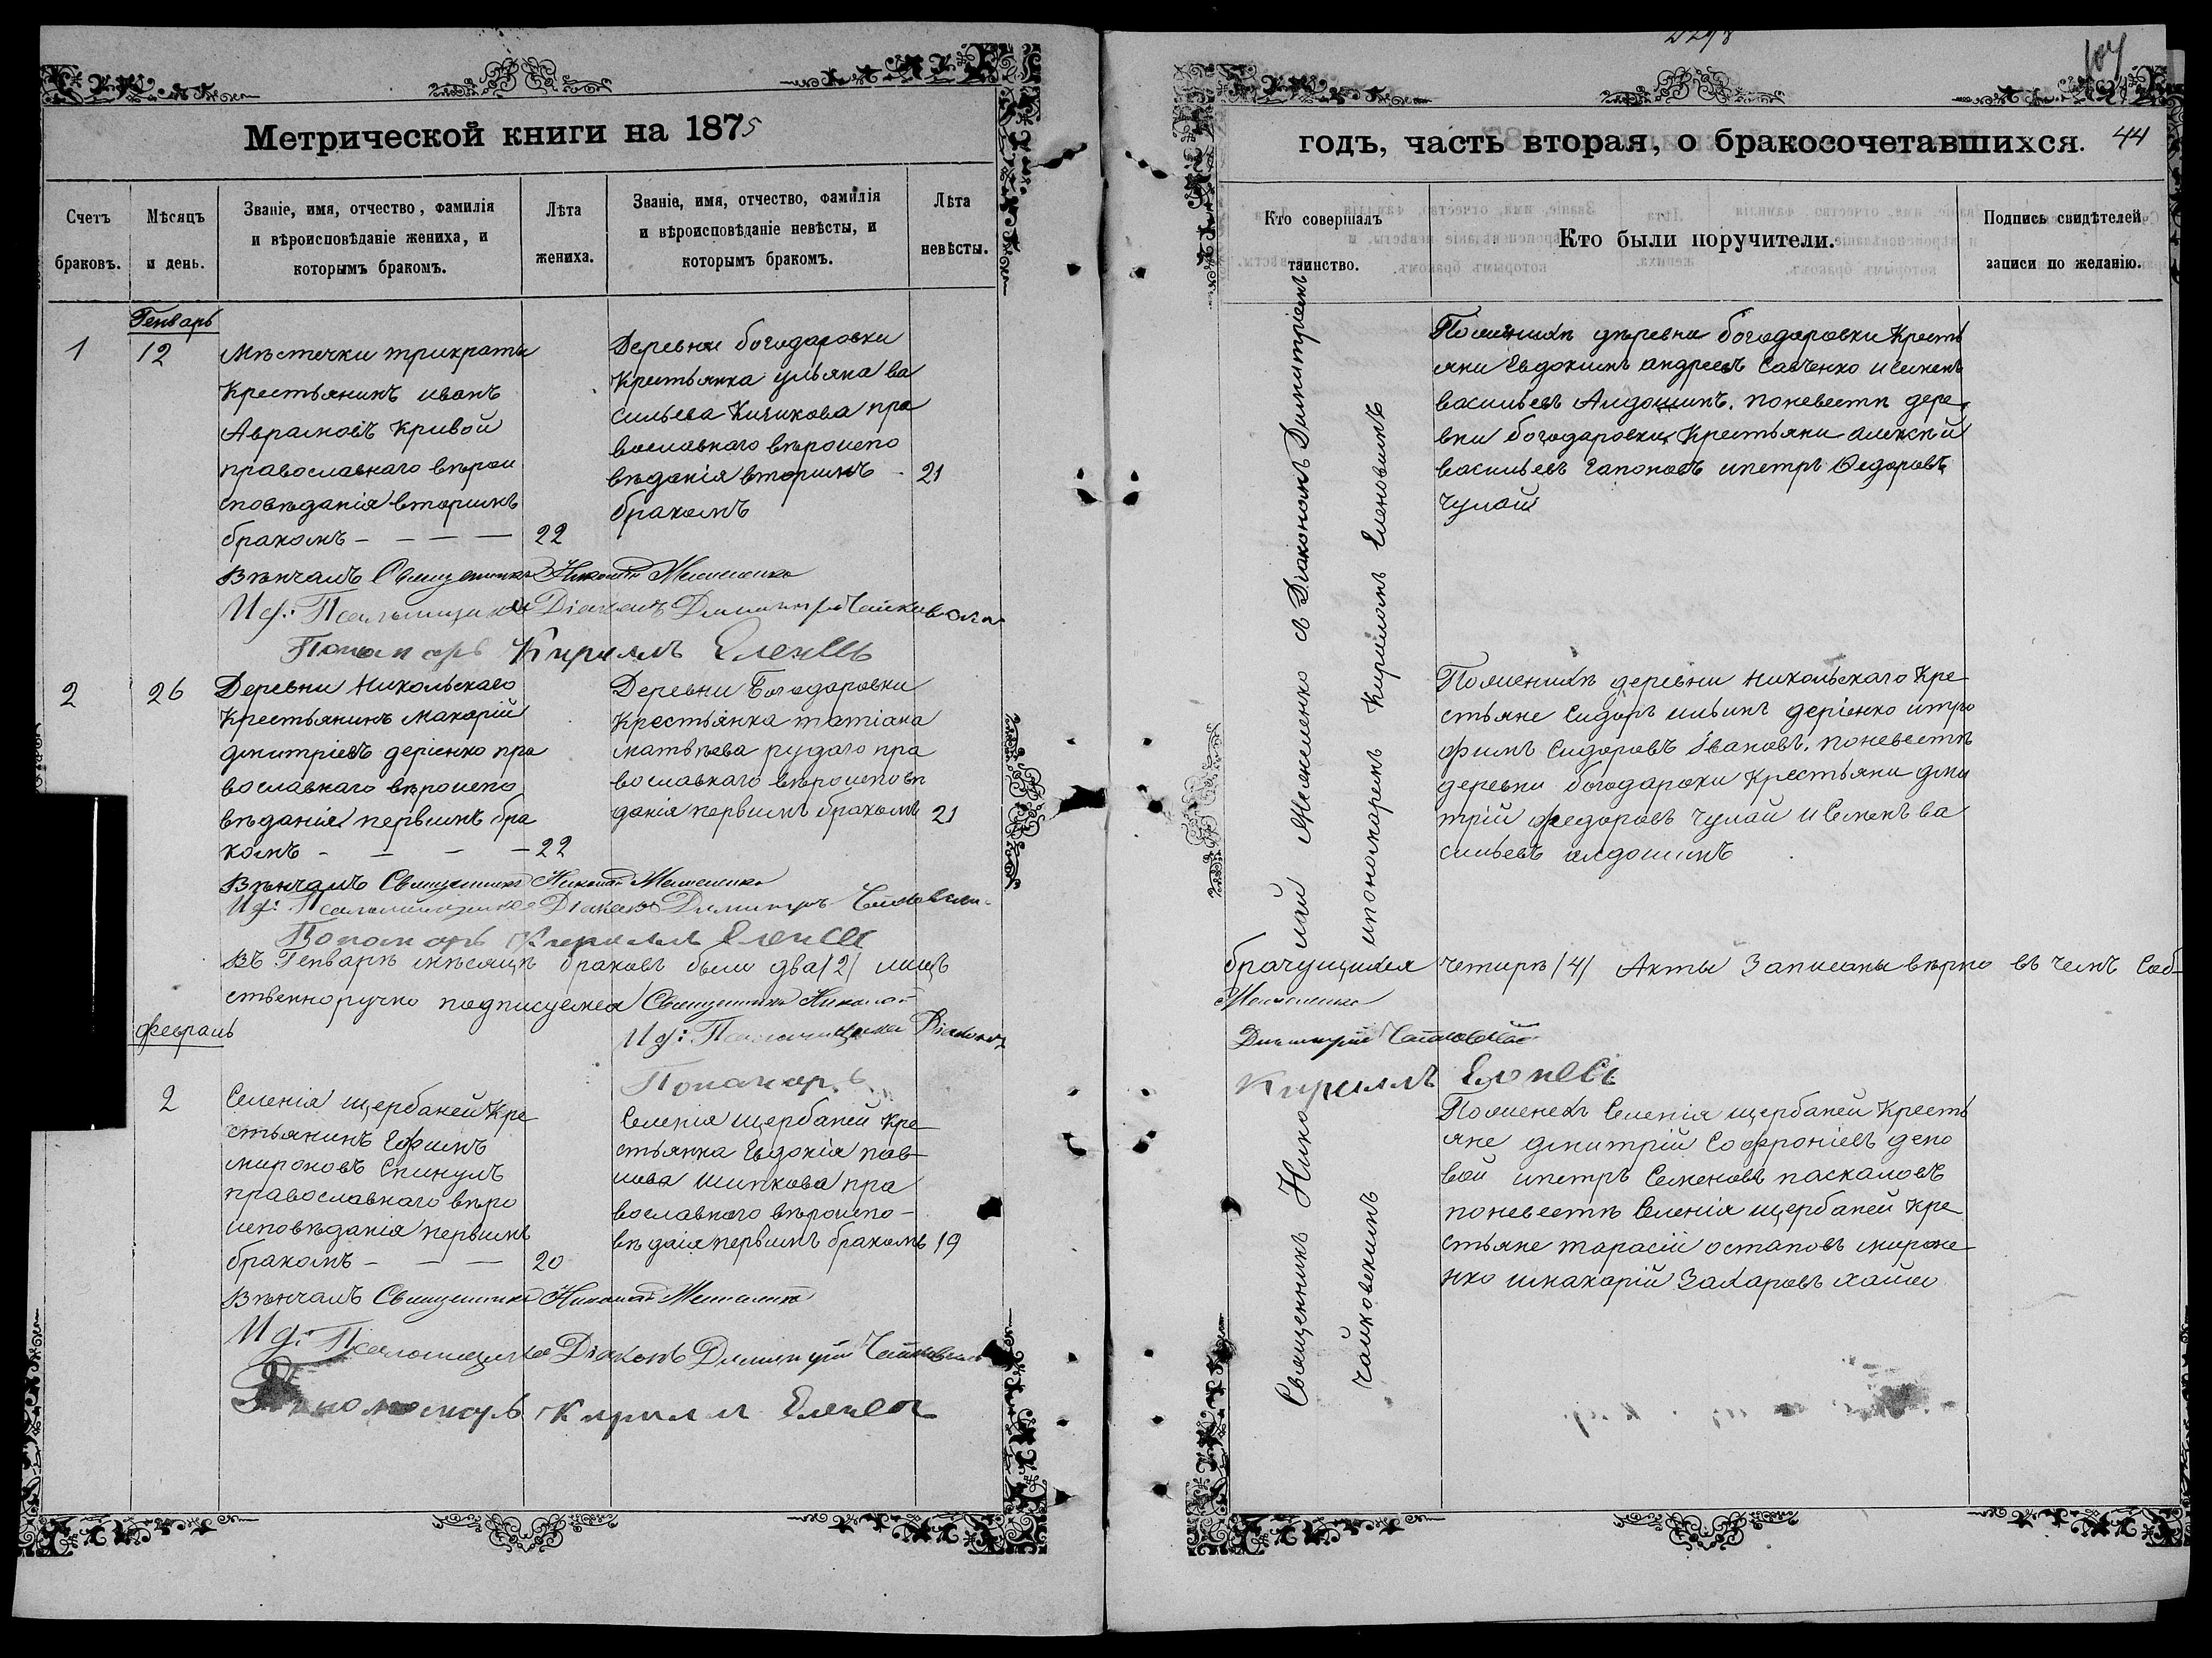 Метрической книги на 1875
Счетъ браковъ.
Мѣсяцъ и день.
Званіе, имя, отчество, фамилія и вѣроисповѣданіе жениха, и которымъ бракомъ.
Лѣта жениха.
Званіе, имя, отчество, фамилія и вѣроисповѣданіе невѣсты, и которымъ бракомъ.
Лѣта невѣсты.
Генварь
1
12
Мѣстечки трикраты
Крестьянинъ иванъ
Авраамовъ Кривой
православнаго вѣрои
сповѣданія вторимъ
бракомъ - - - - 22
Деревни богодаровки
Крестьянка ульяна ва
сильева Кичикова пра
вославнаго вѣроиспо
вѣданія вторимъ - 21
бракомъ
Вѣнчалъ Священникъ Николай
И д: Псаломщика Діаконъ Димитрій Чайковскій
Пономарь Кириллъ
2
26
Деревни Никольскаго
Крестьянинъ макарій
дмитріевъ деріенко пра
вославнаго вѣроиспо
вѣданія первимъ бра
комъ - - - - 22
Деревни Богодаровки
Крестьянка татіана
матвѣева рудаго пра
вославнаго вѣроисповѣ
данія первимъ бракомъ 21
Вѣнчалъ Священникъ Николай
И д: Псаломщика Діаконъ Димитрій
Пономарь Кириллъ
Въ Генварѣ мѣсяцѣ браковъ были два /2/ лицъ
ственноручно подписуемся Священникъ Николай
И д: Псаломщика Діаконъ
Пономарь
Февраль
2
Селенія щербаней Кре
стьянинъ Ефимъ
мироновъ Спинулъ
православнаго вѣро
исповѣданія первимъ
бракомъ - - - 20
Селенія щербаней Кре
стьянка Евдокія пав-
лова шипкова пра
вославнаго вѣроиспо-
вѣдаія первимъ бракомъ 19
Вѣнчалъ Священникъ Николай
И д: Псаломщика Діаконъ Димитрій
Пономарь Кириллъ
годъ, часть вторая, о бракосочетавшихся. 44
Кто совершалъ таинство.
Кто были поручители.
Подпись свидѣтелей записи по желанію.
Священникъ Николай с Діакономъ Димитріемъ
Чайковскимъ ипономаремъ Кириломъ
Поженихѣ деревни богодаровки Кресть
яни Евдокимъ андреевъ Савченко исеменъ
васильевъ Алдошинъ. поневестѣ дере
вни богодаровки Крестьяни алексѣй
васильевъ Гапоновъ ипетръ Федоровъ
Чулай
Поженихѣ деревни Никольскаго Кре
стьяне Сидоръ ильинъ деріенко итро
фимъ Сидоровъ Івановъ. поневестѣ
деревни богодароки Крестьяни дми
трій федоровъ Чулай исеменъ ва
сильевъ алдошинъ
брачущихся четирѣ /4/ Акты Записаны вѣрно въ чемъ Соб-
Кириллъ
Поженехѣ Селенія щербаней Кресть
яне дмитрій Софроніевъ депо
вой ипетръ Семеновъ паскаловъ
поневестѣ Селенія щербаней Кре
стьяне тарасій остаповъ мироне
нко имакарій Захаровъ